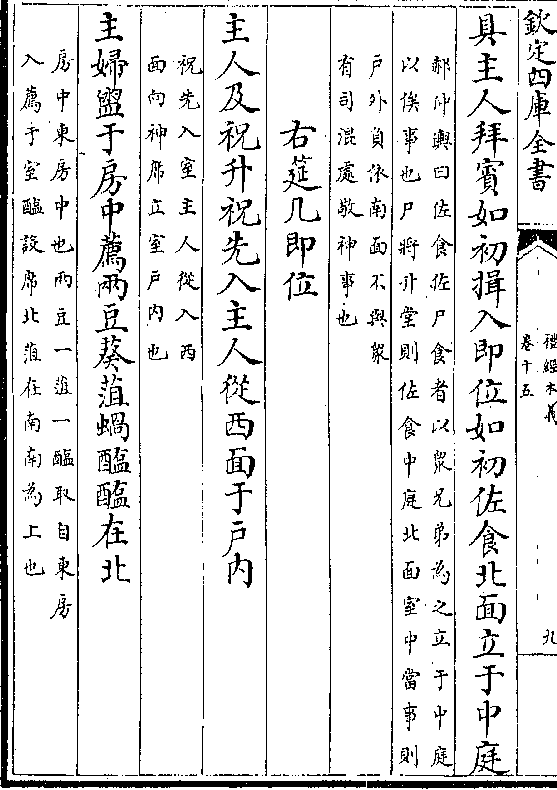 欽定四庫全書
禮經本義
卷十五
九
具主人拜賓如初揖入即位如初佐食北面立于中庭
郝仲輿曰佐食佐尸食者以衆兄弟為之立于中庭
以俟事也尸將升堂則佐食中庭北面室中當事則
戶外負依南面不與衆
有司混處敬神事也
右筵几即位
主人及祝升祝先入主人從西面于戶内
祝先入室主人從入西
面向神席立室戶内也
主婦盥于房中薦兩豆葵菹蝸醢醢在北
房中東房中也兩豆一菹一醢取自東房
入薦于室醢設席北菹在南南為上也